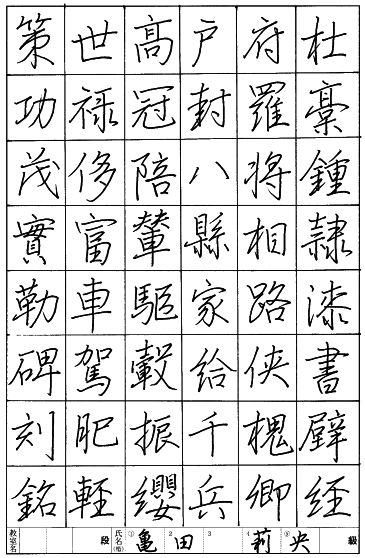 杜稾鍾隸漆書壁經
府羅將相路俠槐卿
戶封八縣家給千兵
髙冠陪輦驅轂振纓
世禄侈富車駕肥輕
策功茂實勒碑刻銘
教室名 段 氏名 亀田 莉央 級